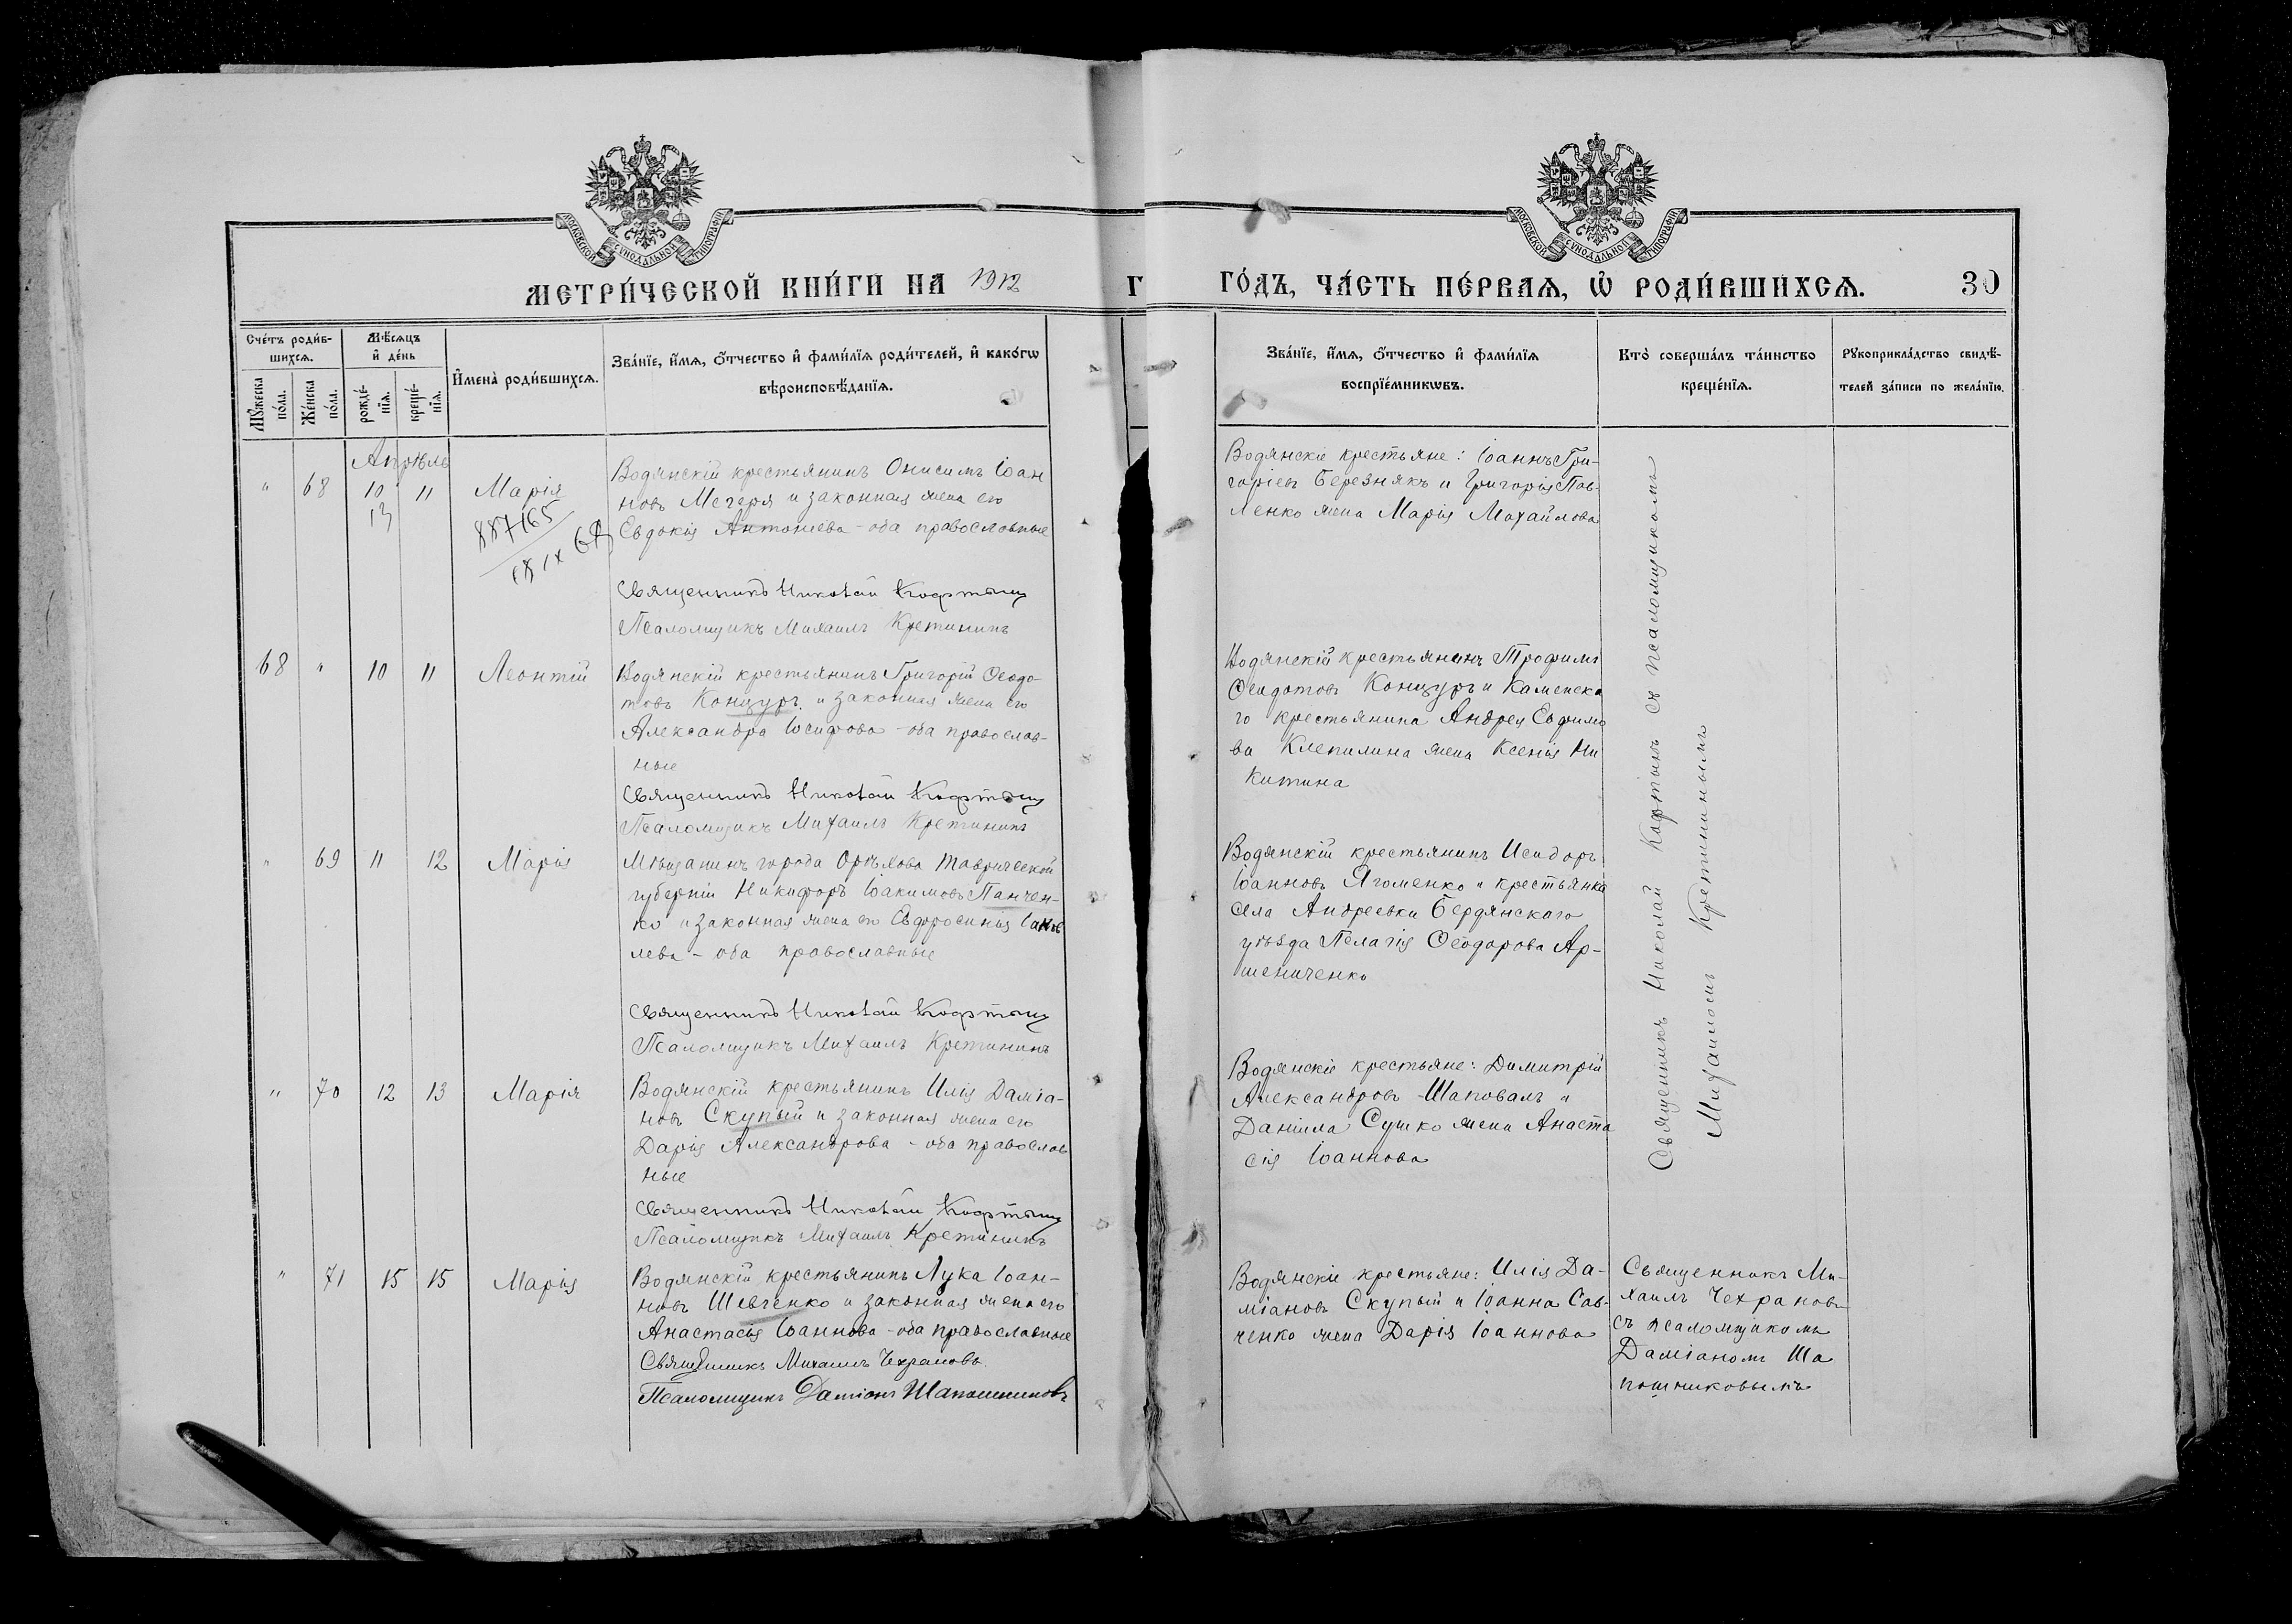 МОСКОВСКОЙ СѴНОДАЛЬНОЙ ТИПОГРАФІИ
МЕТРИ́ЧЕСКОЙ КНИ́ГИ НА 1912
Сче́тъ роди́в-
шихся.
Мѣ́сяцъ
и҆ де́нь
Мꙋ́жеска
по́ла.
Же́нска
по́ла.
рожде́-
нїя.
креще́-
нїя.
И҆мена̀ роди́вшихся.
Зва́нїе, и҆́мя, ѻ҆́тчество и҆ фами́лїя роди́телей, и҆ како́гѡ
вѣроисповѣ́данїя.
Апрѣль
" 68 10 11 Марія
13
887165
Водянскій крестьянинъ Онисимъ Іоан
новъ Мегеря и законная жена его
Евдокія Антоніева - оба православные
Священникъ Николай Кафтанъ
Псаломщикъ Михаилъ Кретининъ
68 " 10 11 Леонтій
Водянскій крестьянинъ Григорій Ѳеодо-
товъ Концуръ и законная жена его
Александра Іосифова - оба православ-
ные
Священникъ Николай Кафтанъ
Псаломщикъ Михаилъ Кретининъ
" 69 11 12 Марія
Мѣщанинъ города Орѣхова Таврической
губерніи Никифоръ Іоакимовъ Панчен-
ко и законная жена его Евфросинія Іаков
лева - оба православные
Священникъ Николай Кафтанъ
Псаломщикъ Михаилъ Кретининъ
" 70 12 13 Марія
Водянскій крестьянинъ Илія Даміа-
новъ Скупый и законная жена его
Дарія Александрова - оба православ
ные
Священникъ Николай Кафтанъ
Псаломщикъ Михаилъ Кретининъ
" 71 15 15 Марія
Водянскій крестьянинъ Лука Іоан-
новъ Шевченко и законная жена его
Анастасія Іоаннова - оба православные
Священникъ Михаилъ Чехрановъ.
Псаломщикъ Даміанъ Шапошниковъ
МОСКОВСКОЙ СѴНОДАЛЬНОЙ ТИПОГРАФІИ
Г ГО́ДЪ, ЧА́СТЬ ПЕ́РВАЯ, Ѡ҆ РОДИ́ВШИХСЯ. 30
Зва́нїе, и҆́мя, ѻ҆́тчество и҆ фами́лїя
воспрїе́мникѡвъ.
Кто̀ соверша́лъ та́инство
креще́нїя.
Рꙋкоприкла́дство свидѣ́-
телей за́писи по жела́нїю.
Водянскіе крестьяне: Іоаннъ Гри-
горіевъ Березнякъ и Григорія Пав-
ленко жена Марія Михайлова
Водянскій крестьянинъ Трофимъ
Ѳеодотовъ Концуръ и Каменска
го крестьянина Андрея Евфимо
ва Клепилина жена Ксенія Ни
китина
Водянскій крестьянинъ Исидоръ
Іоанновъ Ягоменко и крестьянка
села Андреевки Бердянскаго
уѣзда Пелагія Ѳеодорова Ар-
шениченко
Водянскіе крестьяне: Димитрій
Александровъ Шаповалъ и
Даніила Сушко жена Анаста
сія Іоаннова
Водянскіе крестьяне: Илія Да-
міановъ Скупый и Іоанна Сав-
ченко жена Дарія Іоаннова
Священникъ Николай Кафтанъ съ псаломщикомъ
Михаиломъ Кретининымъ
Священникъ Ми-
хаилъ Чехрановъ
съ псаломщикомъ
Даміаномъ Ша
пошниковымъ